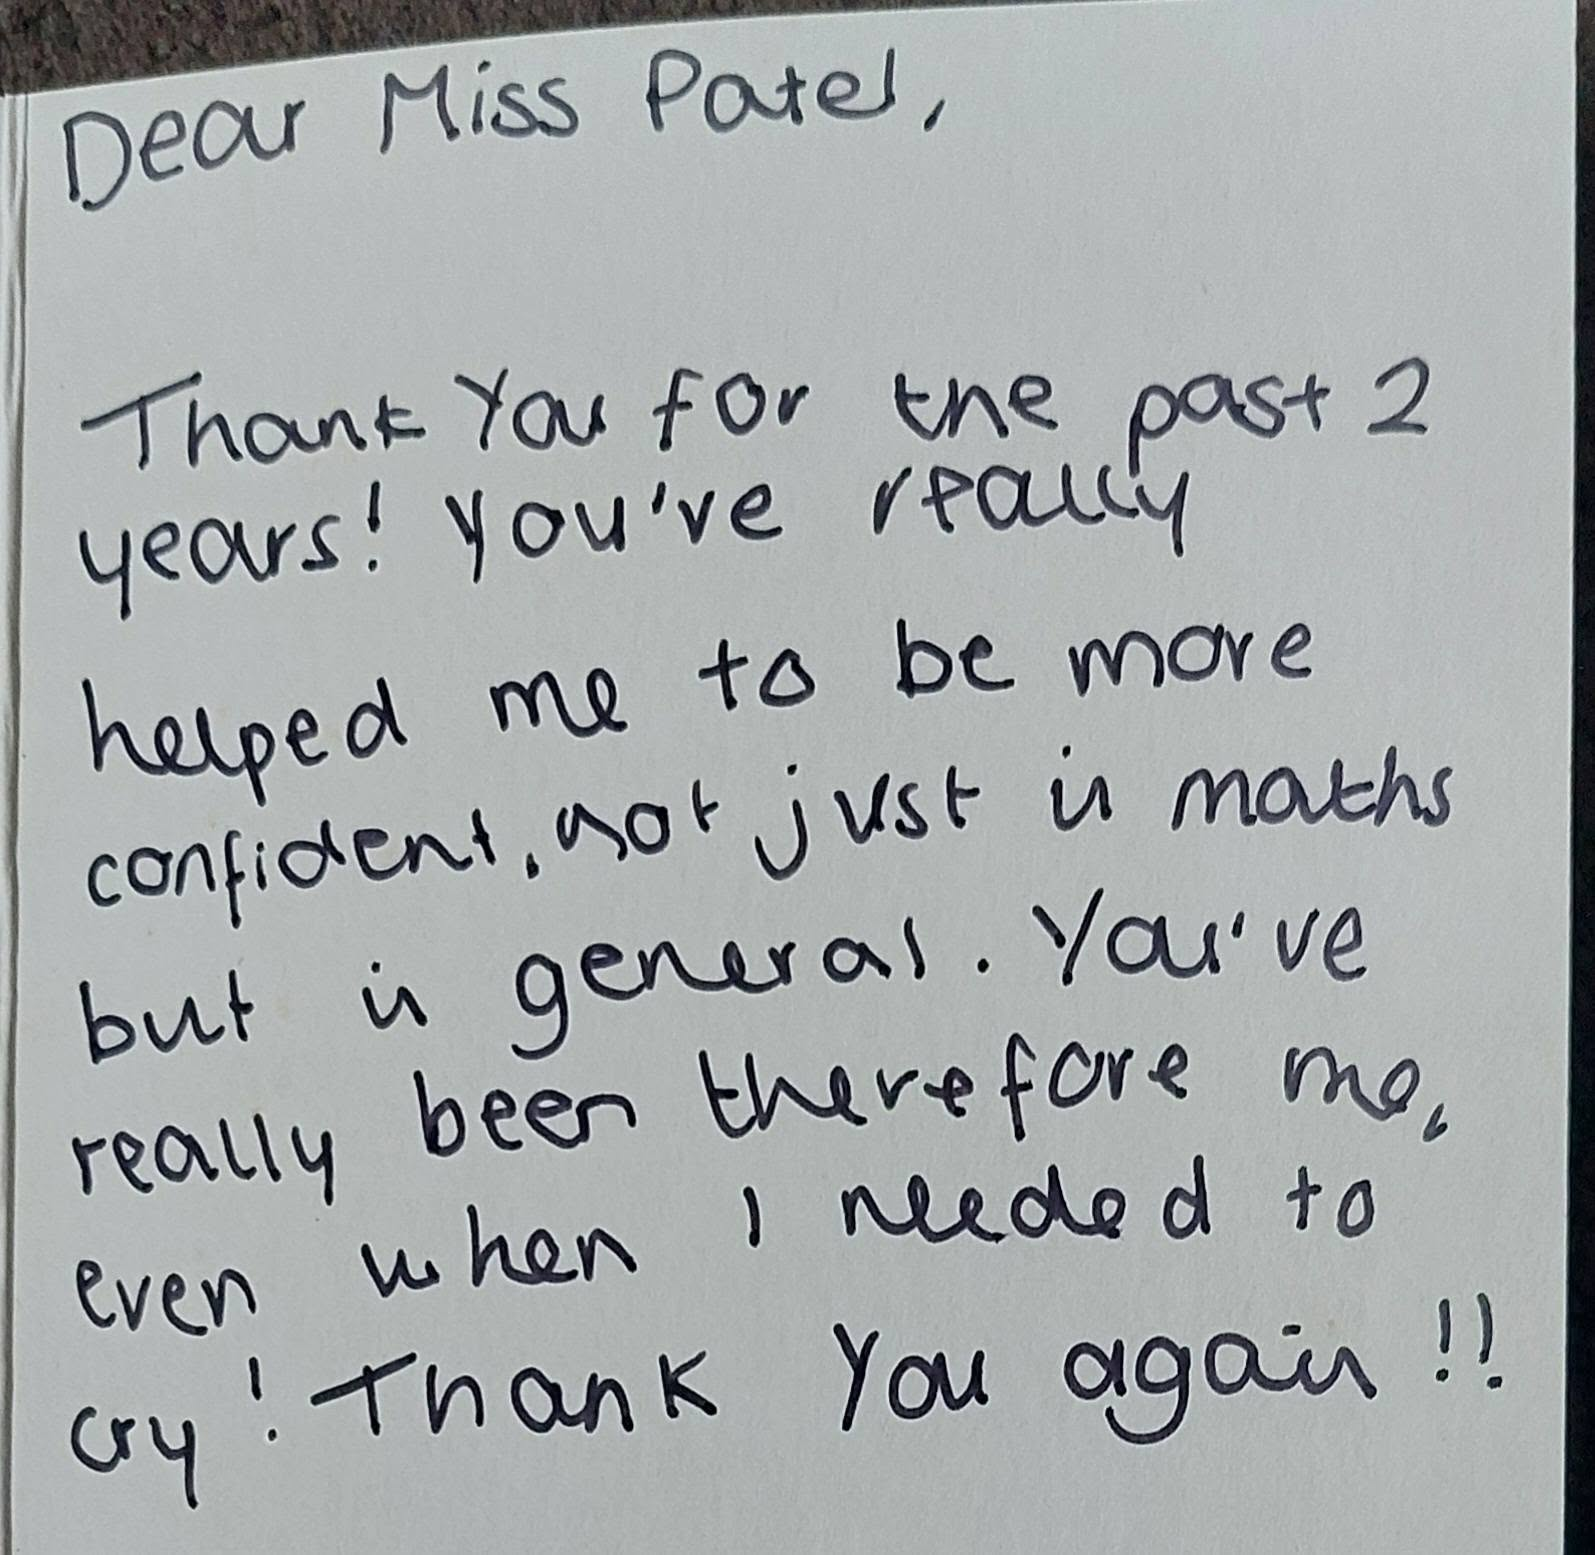 Dear Miss Patel,
Thank You for the past 2
years! You've really
helped me to be more
confident, not just in maths
but in general. You've
really been therefore me,
even when I needed to
cry! Thank You again!!